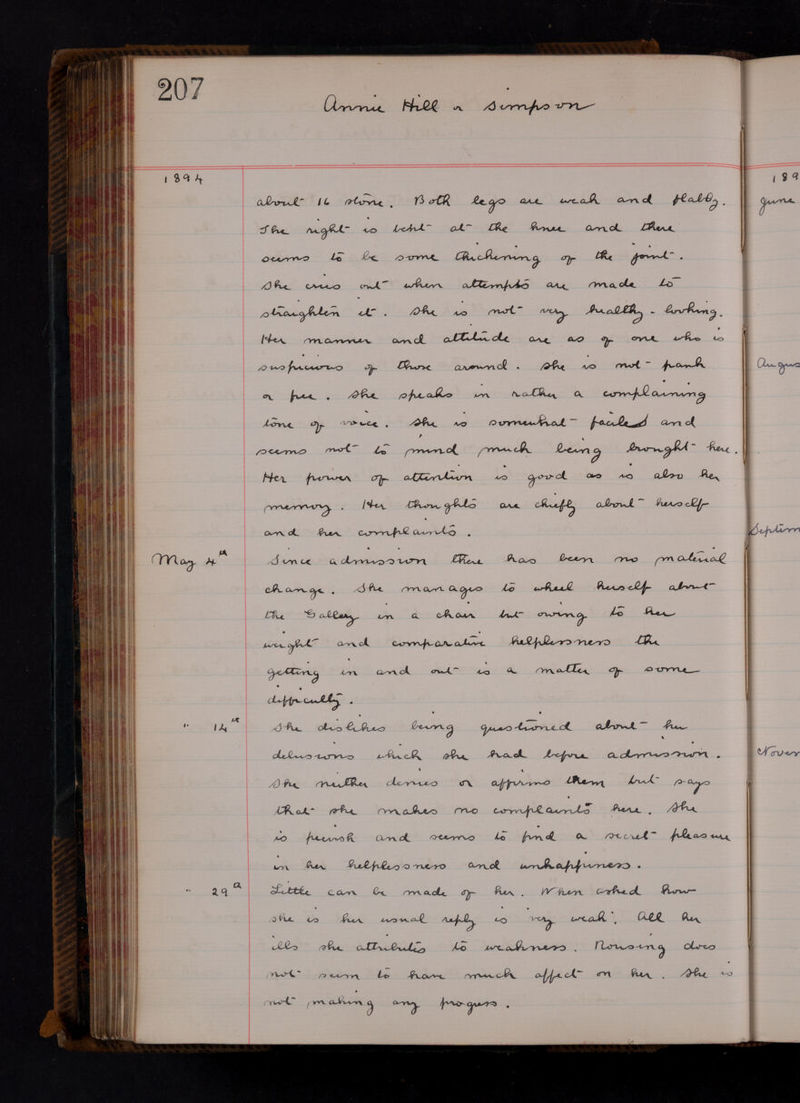 207
Annie Hill or Simpson
1894
189
about 16 stone. Both legs are weak and flabby.
June
The right is bent at the knee and there
seems to be some thickening of the joint.
She cries out when attempts are made to
straighten it. She is not very healthy-looking.
Her manner and attitude are as of one who is
suspicious of those around. She is not frank
Augus
or free. She speaks in rather a complaining
tone of voice. She is somewhat and
seems not to mind much being brought here.
Her power of attention is good as is also her
memory. Her thoughts are chiefly about herself
and her complaints.
Septem
May 4th Since admission there has been no material
change. She manages to wheel herself about
the Gallery in a chair but owing to her
weight and comparative helplessness the
getting in and out is a matter of some
difficulty.
" 14th She dislikes being questioned about her
delusions which she had before admission.
Novem
She neither denies or affirms them but says
that she makes no complaints here. She
is peevish and seems to find a secret pleasure
in her helplessness and unhappiness.
" 29th Little can be made of her. When asked how
she is her usual reply is very weak'. All her
ills she attributes to weakness. Rousing does
not seem to have much affect on her. She is
not making any progress.